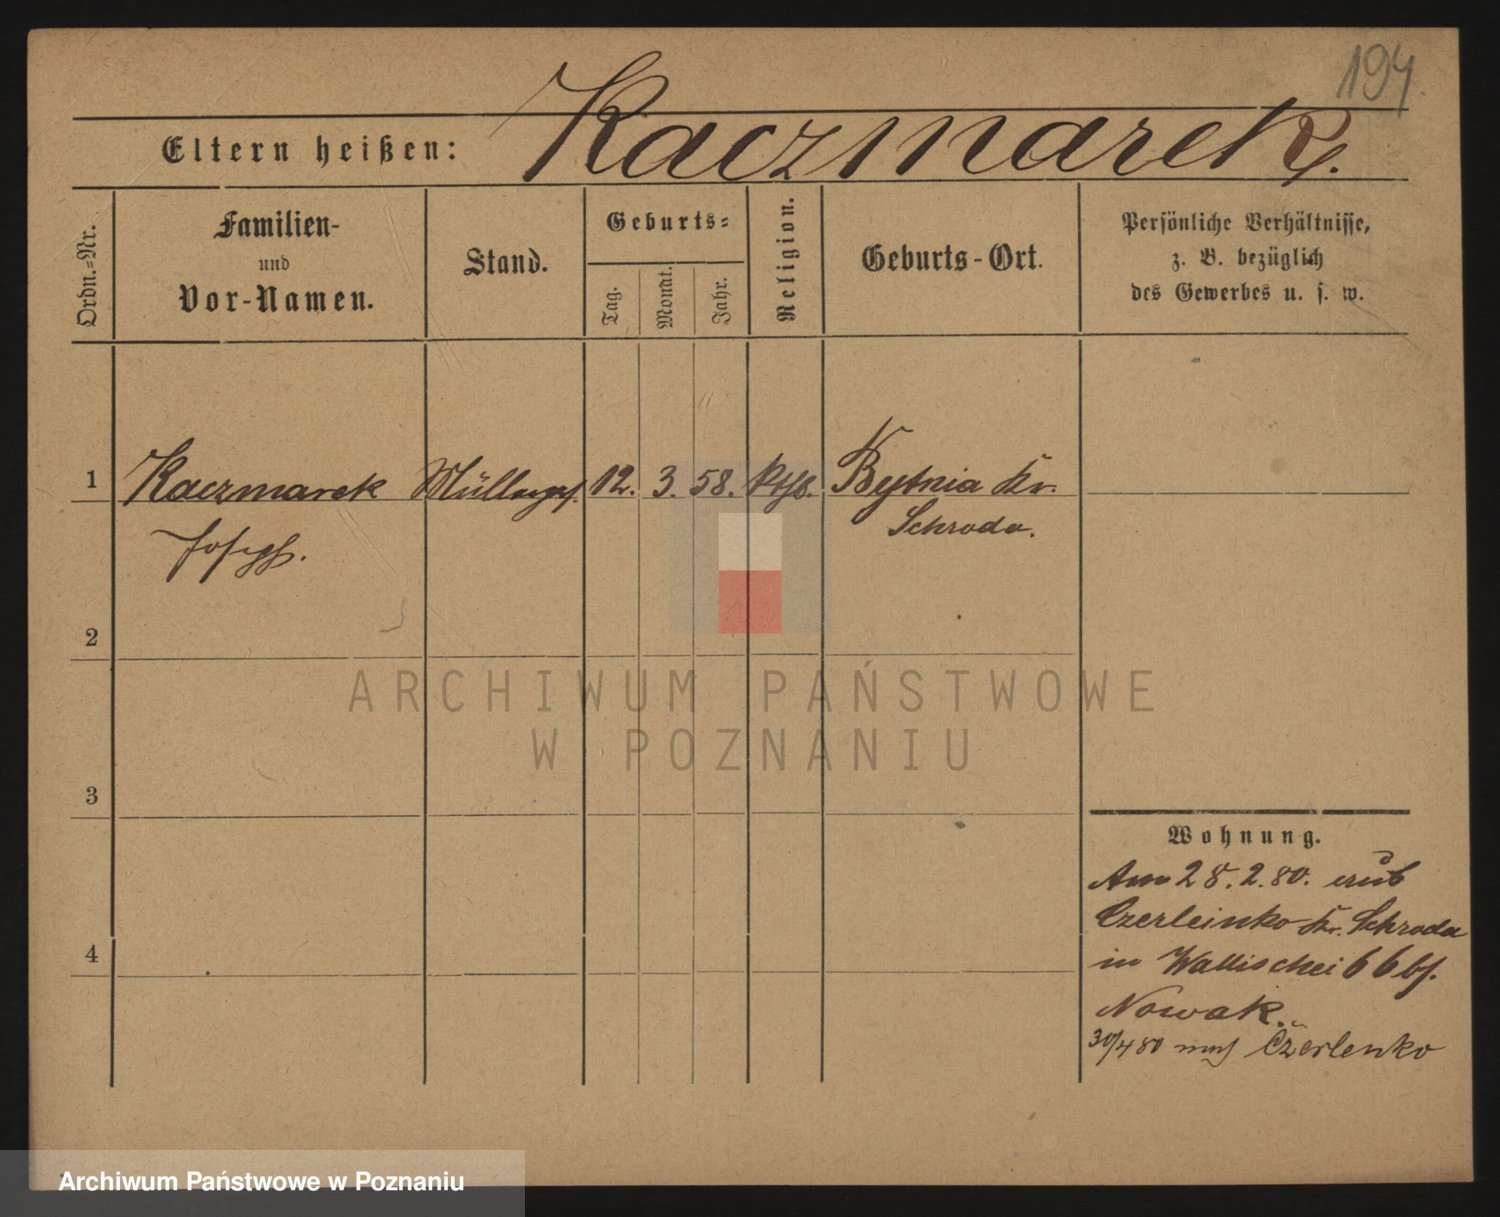 194.
Eltern heißen: Kaczmarek.
Ordn.-Nr.
Familien-
und
Vor-Namen.
Stand.
Geburts-
Tag.
Monat.
Jahr.
Religion.
Geburts-Ort.
Persönliche Verhältnisse,
z. B. bezüglich
des Gewerbes u. s. w.
1 Kaczmarek Müllerges. 12. 3. 58. kth. Bytnia Kr.
Joseph. Schroda.
2
ARCHIWUM PAŃSTWOWE
W POZNANIU
3
Wohnung.
Am 25.2.80. aus
Czerleinko Kr. Schroda
4
in Wallischei 66 bf.
Nowak.
30/4 80 nach Czerlenko
Archiwum Państwowe w Poznaniu